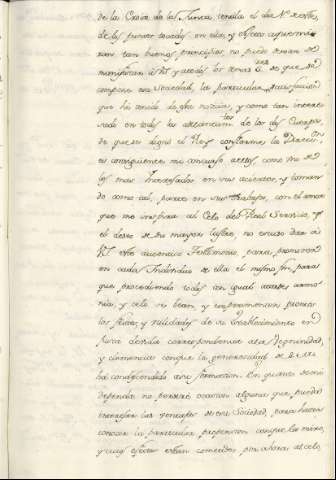 de la Copia de la Junta tenida el dia 1º de este,
de los puntos tocados en ella, y ofreciendo
con tan buenos principios no puedo menos de
manifestar á V. y á todos los demas Sres que se
compone esa Sociedad, la particular satisfaccion
que he tenido de esta noticia, y como tan interesado
en todos los adelantamtos de los dos Cuerpos,
de que se dignó el Rey confiarme la Direccn
es consiguiente mi concurso á ellos, como uno de
los mas Interesados en sus aciertos, y toman
do como tal, parte en sus trabajos, con el amor
que me inspira el Celo del Real Servicio, y
el deseo de su mayor lustre, no escuso dar á
V. este autentico Testimonio, para promover
en cada Individuo de ella el mismo fin, para
que procediendo todos con igual acierto armo
nia, y celo se vean, y experimenten
los frutos, y utilidades de su establecimiento en
justa deuda correspondiente á la dignidad,
y eminencia con que la generosidad de S. M.
há condescendido á su formacion. En quanto de mi
dependa no perderé ocasion alguna que pueda
las ventajas de esa Sociedad, para hacer
conocer la particular propension con que las miro,
y cuyos efectos estan cometidos por ahora al celo